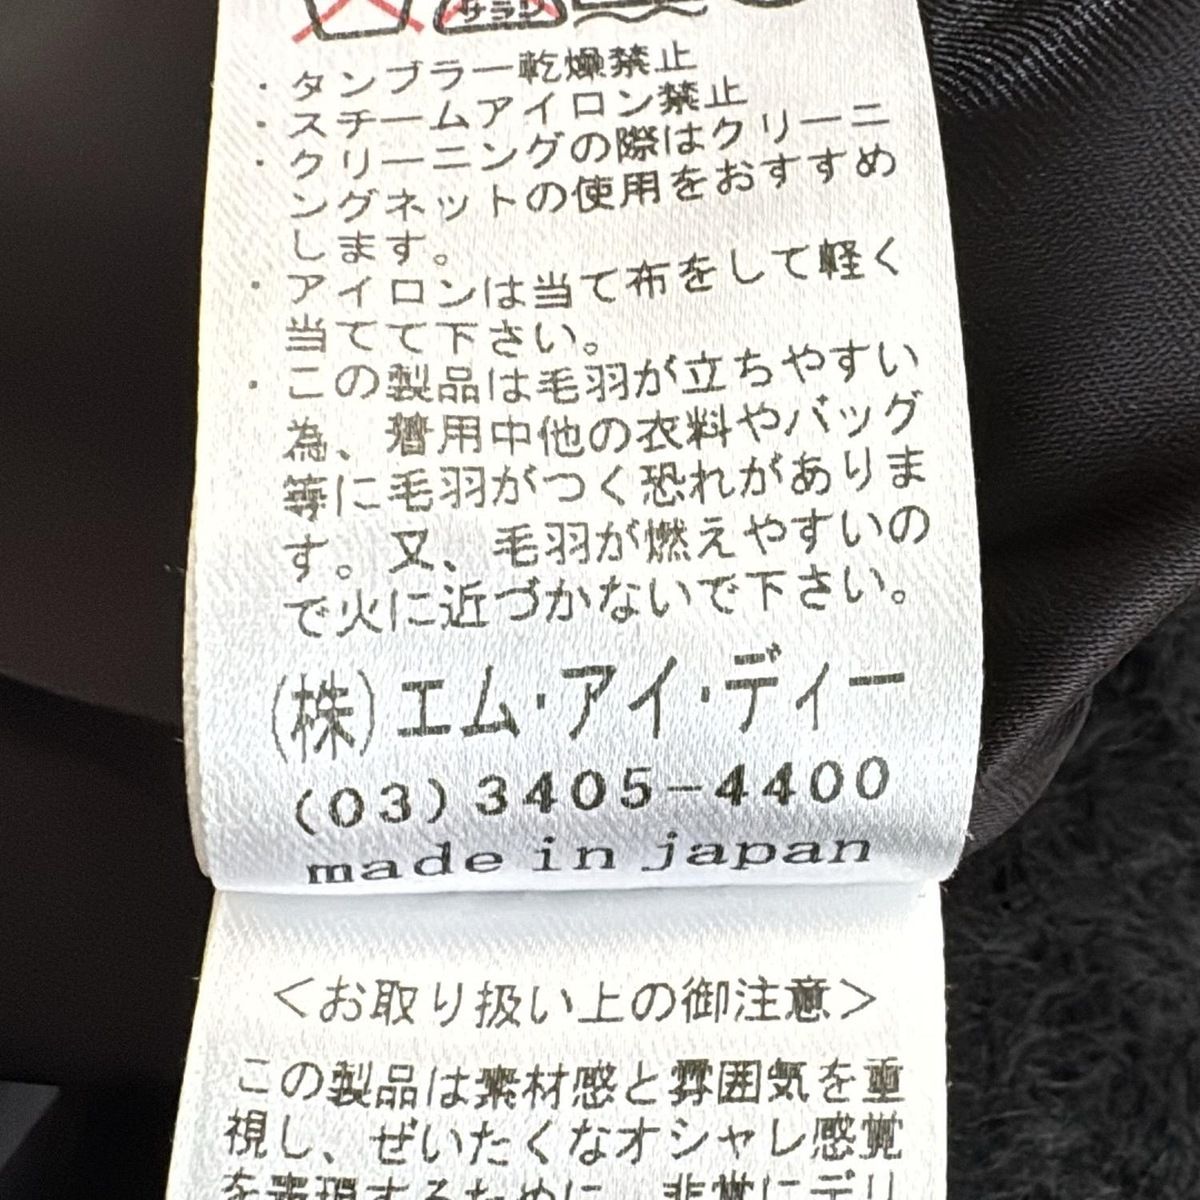 サラシ
・タンブラー乾燥禁止
・スチームアイロン禁止
・クリーニングの際はクリーニ
ングネットの使用をおすすめ
します。
・アイロンは当て布をして軽く
当てて下さい。
・この製品は毛羽が立ちやすい
為、着用中他の衣料やバッグ
等に毛羽がつく恐れがありま
す。又、毛羽が燃えやすいの
で火に近づかないで下さい。
(株)エム・アイ・ディー
(03)3405-4400
made in japan
<お取り扱い上の御注意>
この製品は素材感と雰囲気を重
視し、ぜいたくなオシャレ感覚
を表現するために、非常にデリ